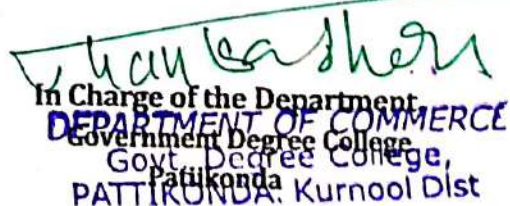 In Charge of the Department,
DEPARTMENT OF COMMERCE
Government Degree College
Govt. Degree College,
Pattikonda
PATTIKONDA. Kurnool Dist